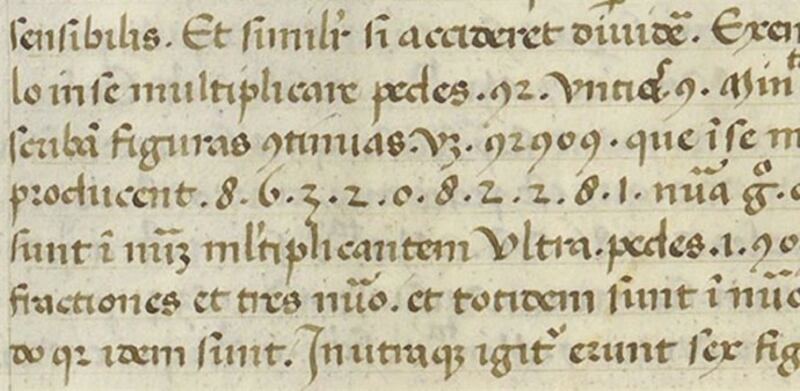 sensibilis. Et simili͂r si accideret diuidē. Exem
lo in se multiplicare pedes .92. Vntias 9. Min
scribā figuras 9tinuas. Vz. 92909. que ī se m
producent. 8. 6. 3. 2. 0. 8. 2. 2. 8. 1. nūa gͦ.
sunt ī nūʒ ml'tiplicantem Vltra. pedes .1. 90
fractiones et tres nūo. et totidem sunt ī nūo
do qr idem sunt. In utraqʒ igitᷣ erunt sex fig